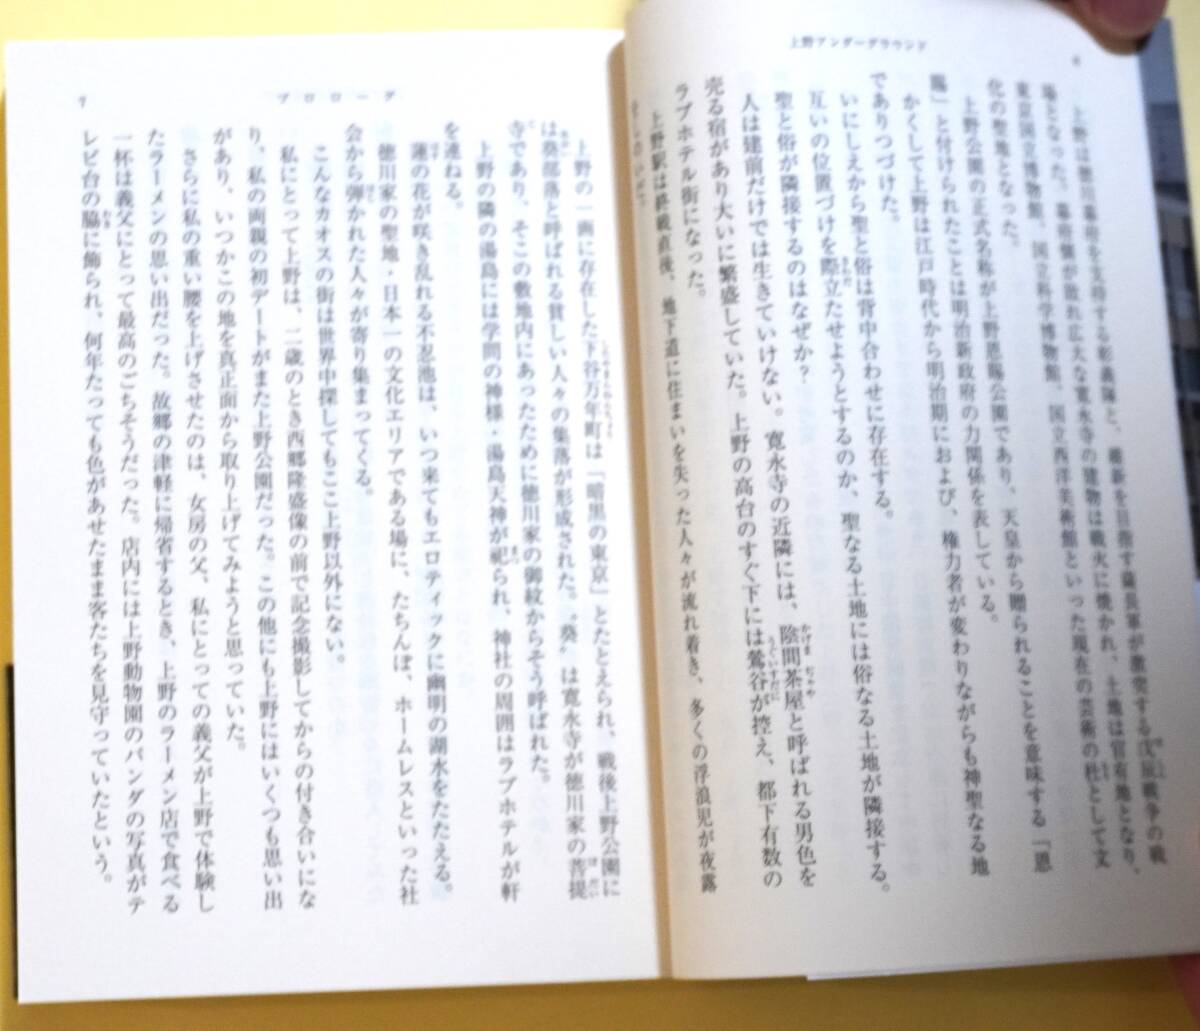 上野アンダーグラウンド
上野は徳川幕府を支持する彰義隊と、維新を目指す薩長軍が激突する戊辰戦争の戦
場となった。幕府側が敗れ広大な寛永寺の建物は戦火に焼かれ、土地は官有地となり、
東京国立博物館、国立科学博物館、国立西洋美術館といった現在の芸術の杜として文
化の聖地となった。
上野公園の正式名称が上野恩賜公園であり、天皇から贈られることを意味する「恩
賜」と付けられたことは明治新政府の力関係を表している。
かくして上野は江戸時代から明治期におよび、権力者が変わりながらも神聖なる地
でありつづけた。
いにしえから聖と俗は背中合わせに存在する。
互いの位置づけを際立たせようとするのか、聖なる土地には俗なる土地が隣接する。
聖と俗が隣接するのはなぜか？
人は建前だけでは生きていけない。寛永寺の近隣には、陰間茶屋と呼ばれる男色を
売る宿があり大いに繁盛していた。上野の高台のすぐ下には鶯谷が控え、都下有数の
ラブホテル街になった。
上野駅は終戦直後、地下道に住まいを失った人々が流れ着き、多くの浮浪児が夜露
プロローグ
7
上野の一画に存在した下谷万年町は「暗黒の東京」とたとえられ、戦後上野公園に
は葵部落と呼ばれる貧しい人々の集落が形成された。“葵”は寛永寺が徳川家の菩提
寺であり、そこの敷地内にあったために徳川家の御紋からそう呼ばれた。
上野の隣の湯島には学問の神様・湯島天神が祀られ、神社の周囲はラブホテルが軒
を連ねる。
蓮の花が咲き乱れる不忍池は、いつ来てもエロティックに幽明の湖水をたたえる。
徳川家の聖地・日本一の文化エリアである場に、たちんぼ、ホームレスといった社
会から弾かれた人々が寄り集まってくる。
こんなカオスの街は世界中探してもここ上野以外にない。
私にとって上野は、二歳のとき西郷隆盛像の前で記念撮影してからの付き合いにな
り、私の両親の初デートがまた上野公園だった。この他にも上野にはいくつも思い出
があり、いつかこの地を真正面から取り上げてみようと思っていた。
さらに私の重い腰を上げさせたのは、女房の父、私にとっての義父が上野で体験し
たラーメンの思い出だった。故郷の津軽に帰省するとき、上野のラーメン店で食べる
一杯は義父にとって最高のごちそうだった。店内には上野動物園のパンダの写真がテ
レビ台の脇に飾られ、何年たっても色があせたまま客たちを見守っていたという。